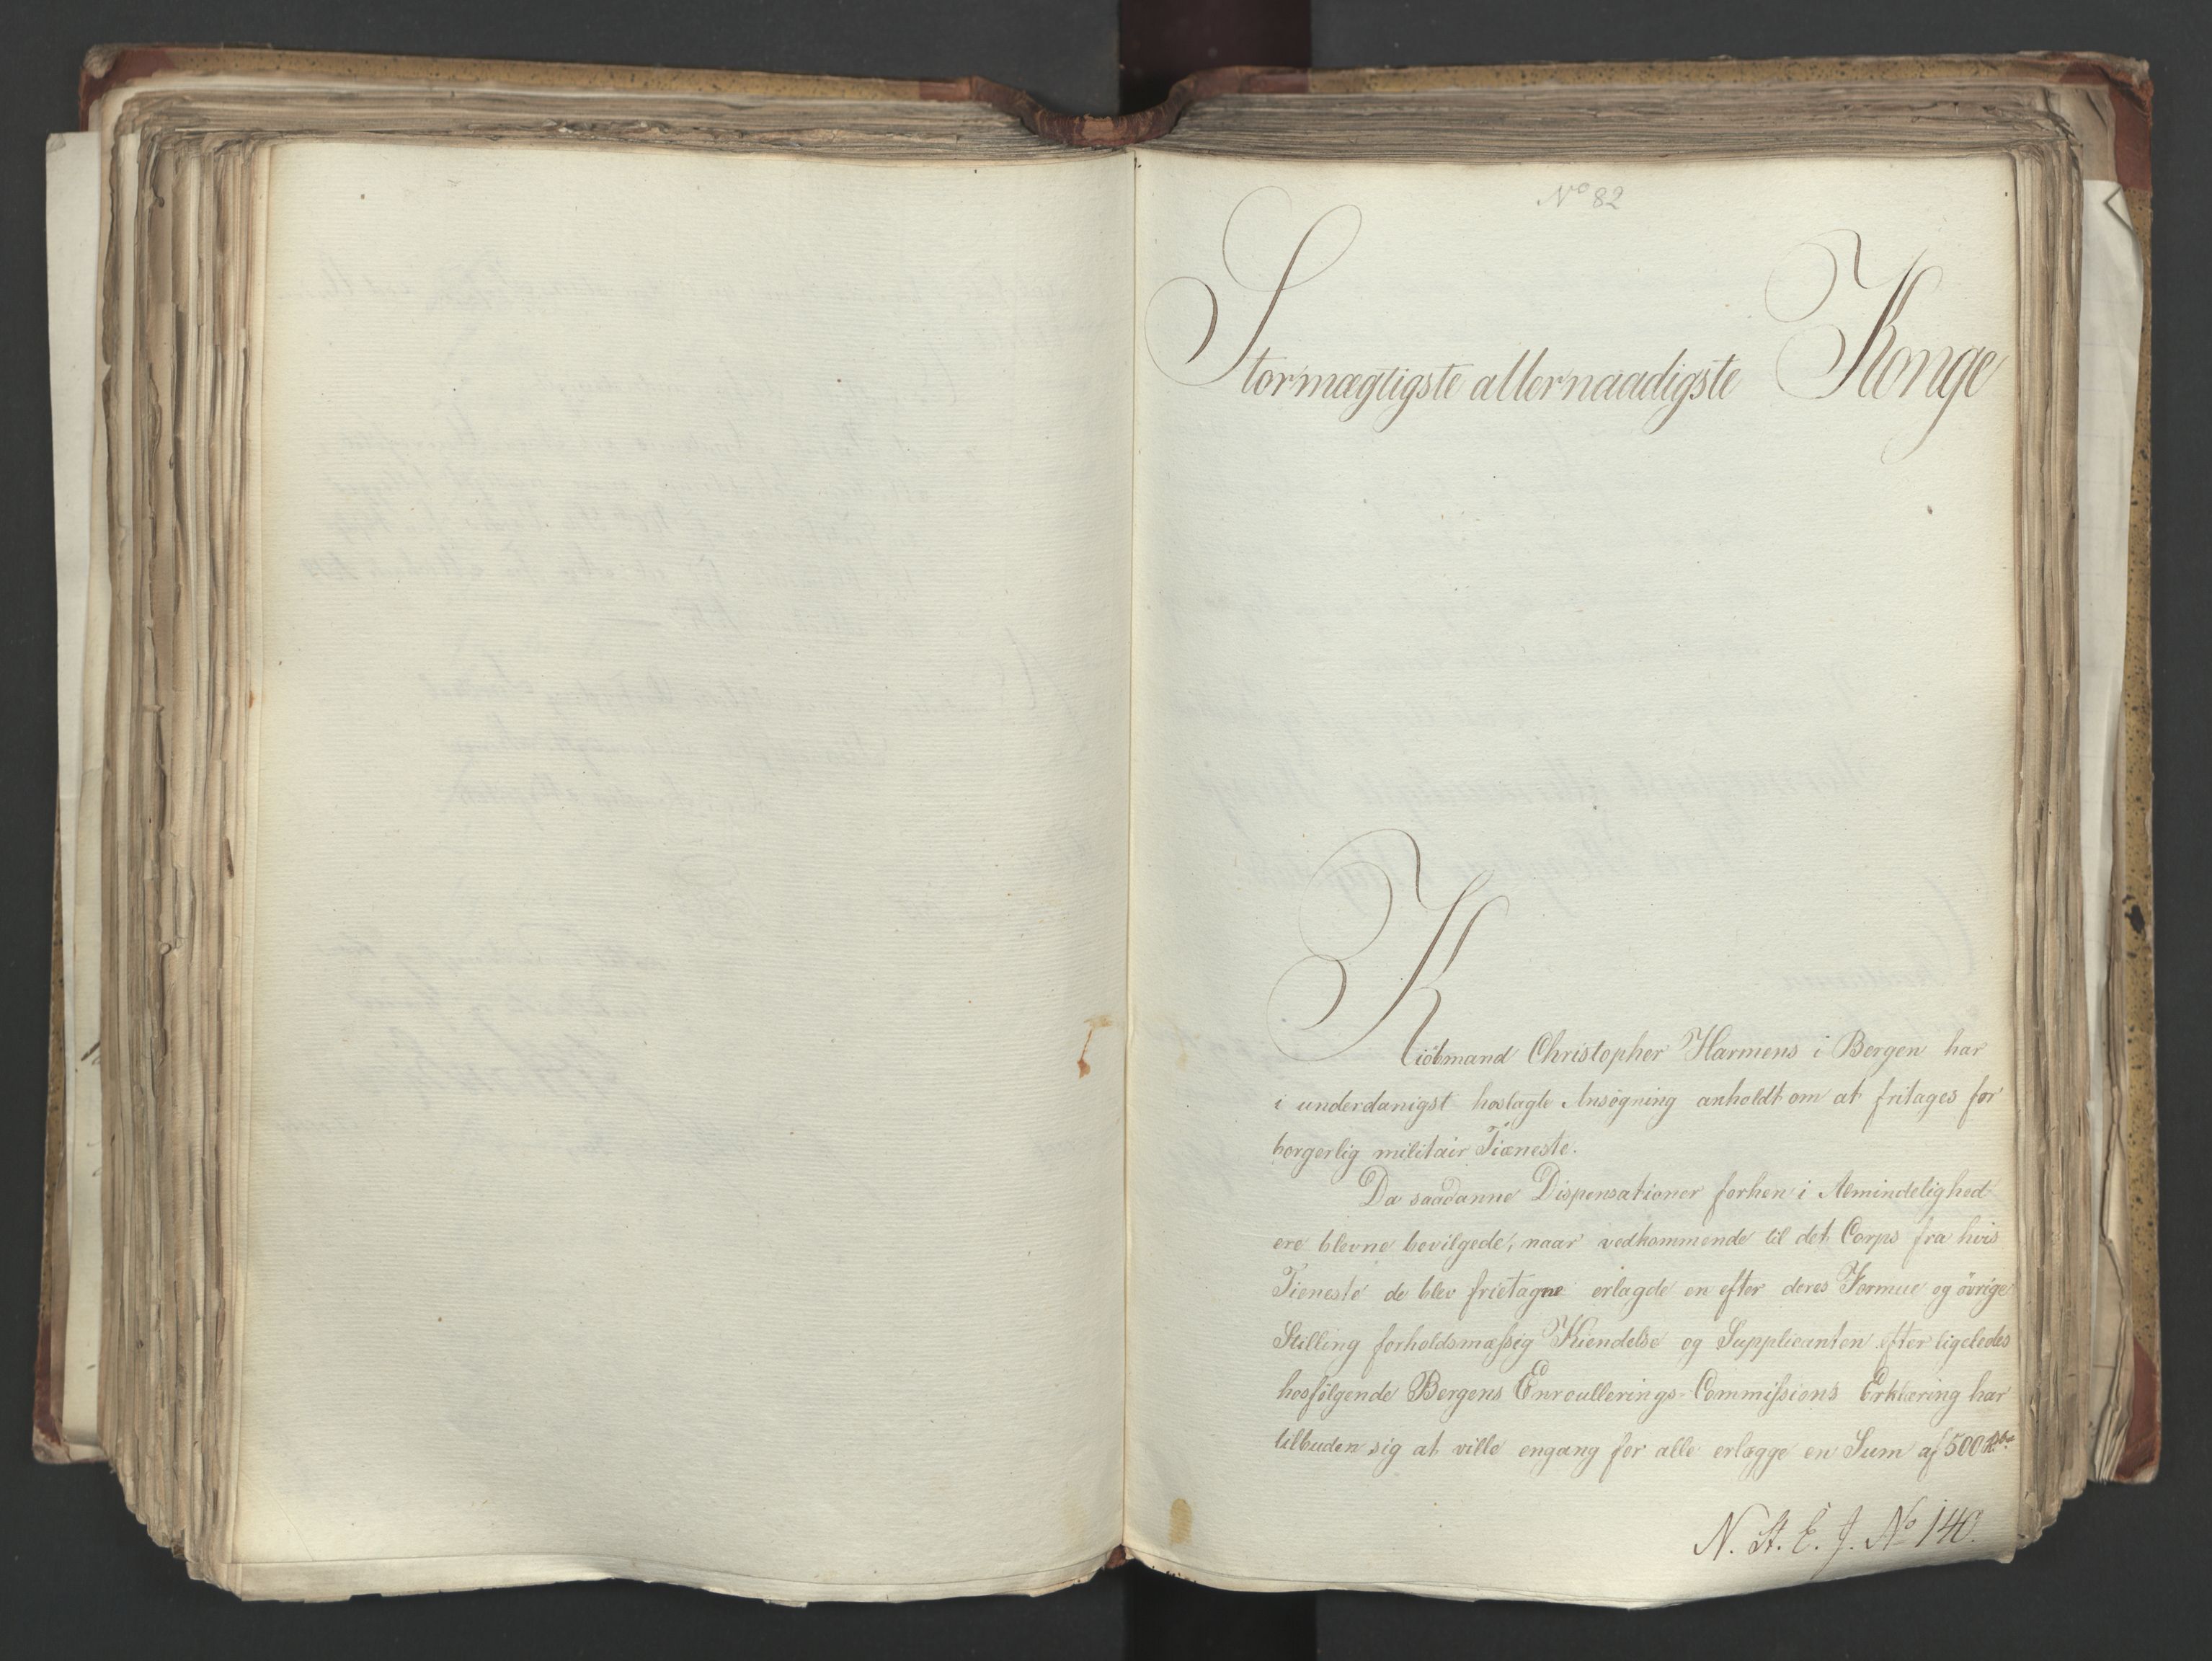 No 82
Stormægtigste allernaadigste Konge
Kiöbmand Christopher Harmens i Bergen har
i underdanigst hoslagte Ansøgning anholdt om at fritages for
borgerlig militair Tieneste.
Da saadanne Dispensationer forhen i Almindelighed
ere blevne bevilgede, naar vedkommende til det Corps fra hvis
Tieneste de blev frietagne erlagde en efter deres Formue og övrige
Stilling forholdsmæssig Kiendelse og Supplicanten efter ligeledes
hosfølgende Bergens Enroullerings-Commissions Erklæring har
tilbuden sig at ville engang for alle erlægge en Sum af 500 Rbd
N. St. E. J. No 140.